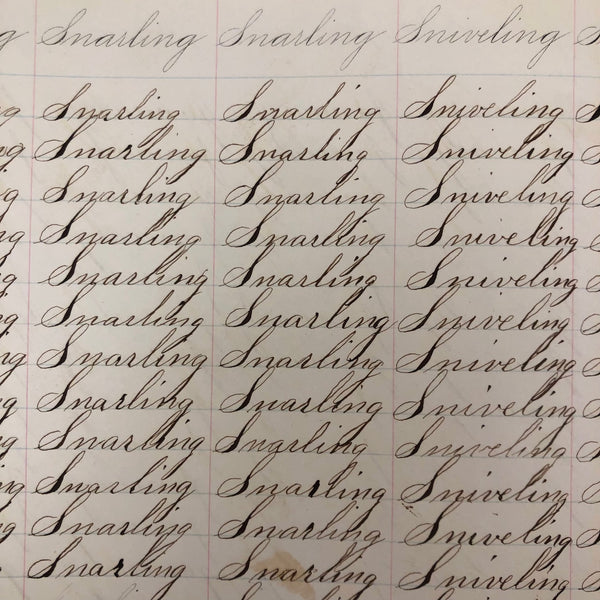 g Snarling Snarling Sniveling S
g Snarling Snarling Sniveling S
g Snarling Snarling Sniveling S
g Snarling Snarling Sniveling S
g Snarling Snarling Sniveling S
g Snarling Snarling Sniveling S
g Snarling Snarling Sniveling S
ng Snarling Snarling Sniveling S
g Snarling Snarling Sniveling S
g Snarling Snarling Sniveling S
ng Snarling Snarling Sniveling S
g Snarling Snarling Sniveling S
Snarling Snarling Sniveling S